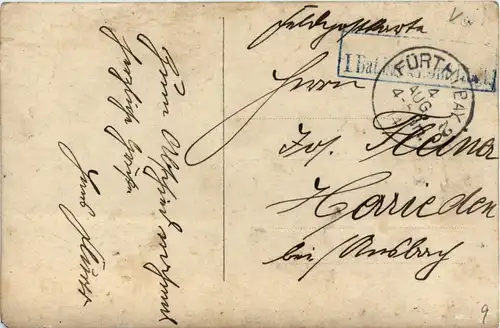 Feldpostkarte
I Bat
FÜRTH
BAY. 2
4
AUG
4-5
Herrn
Jos. Steiner
Herrieden
bei Ansbach
Zum Abschied nochmal
herzliche Grüße
9